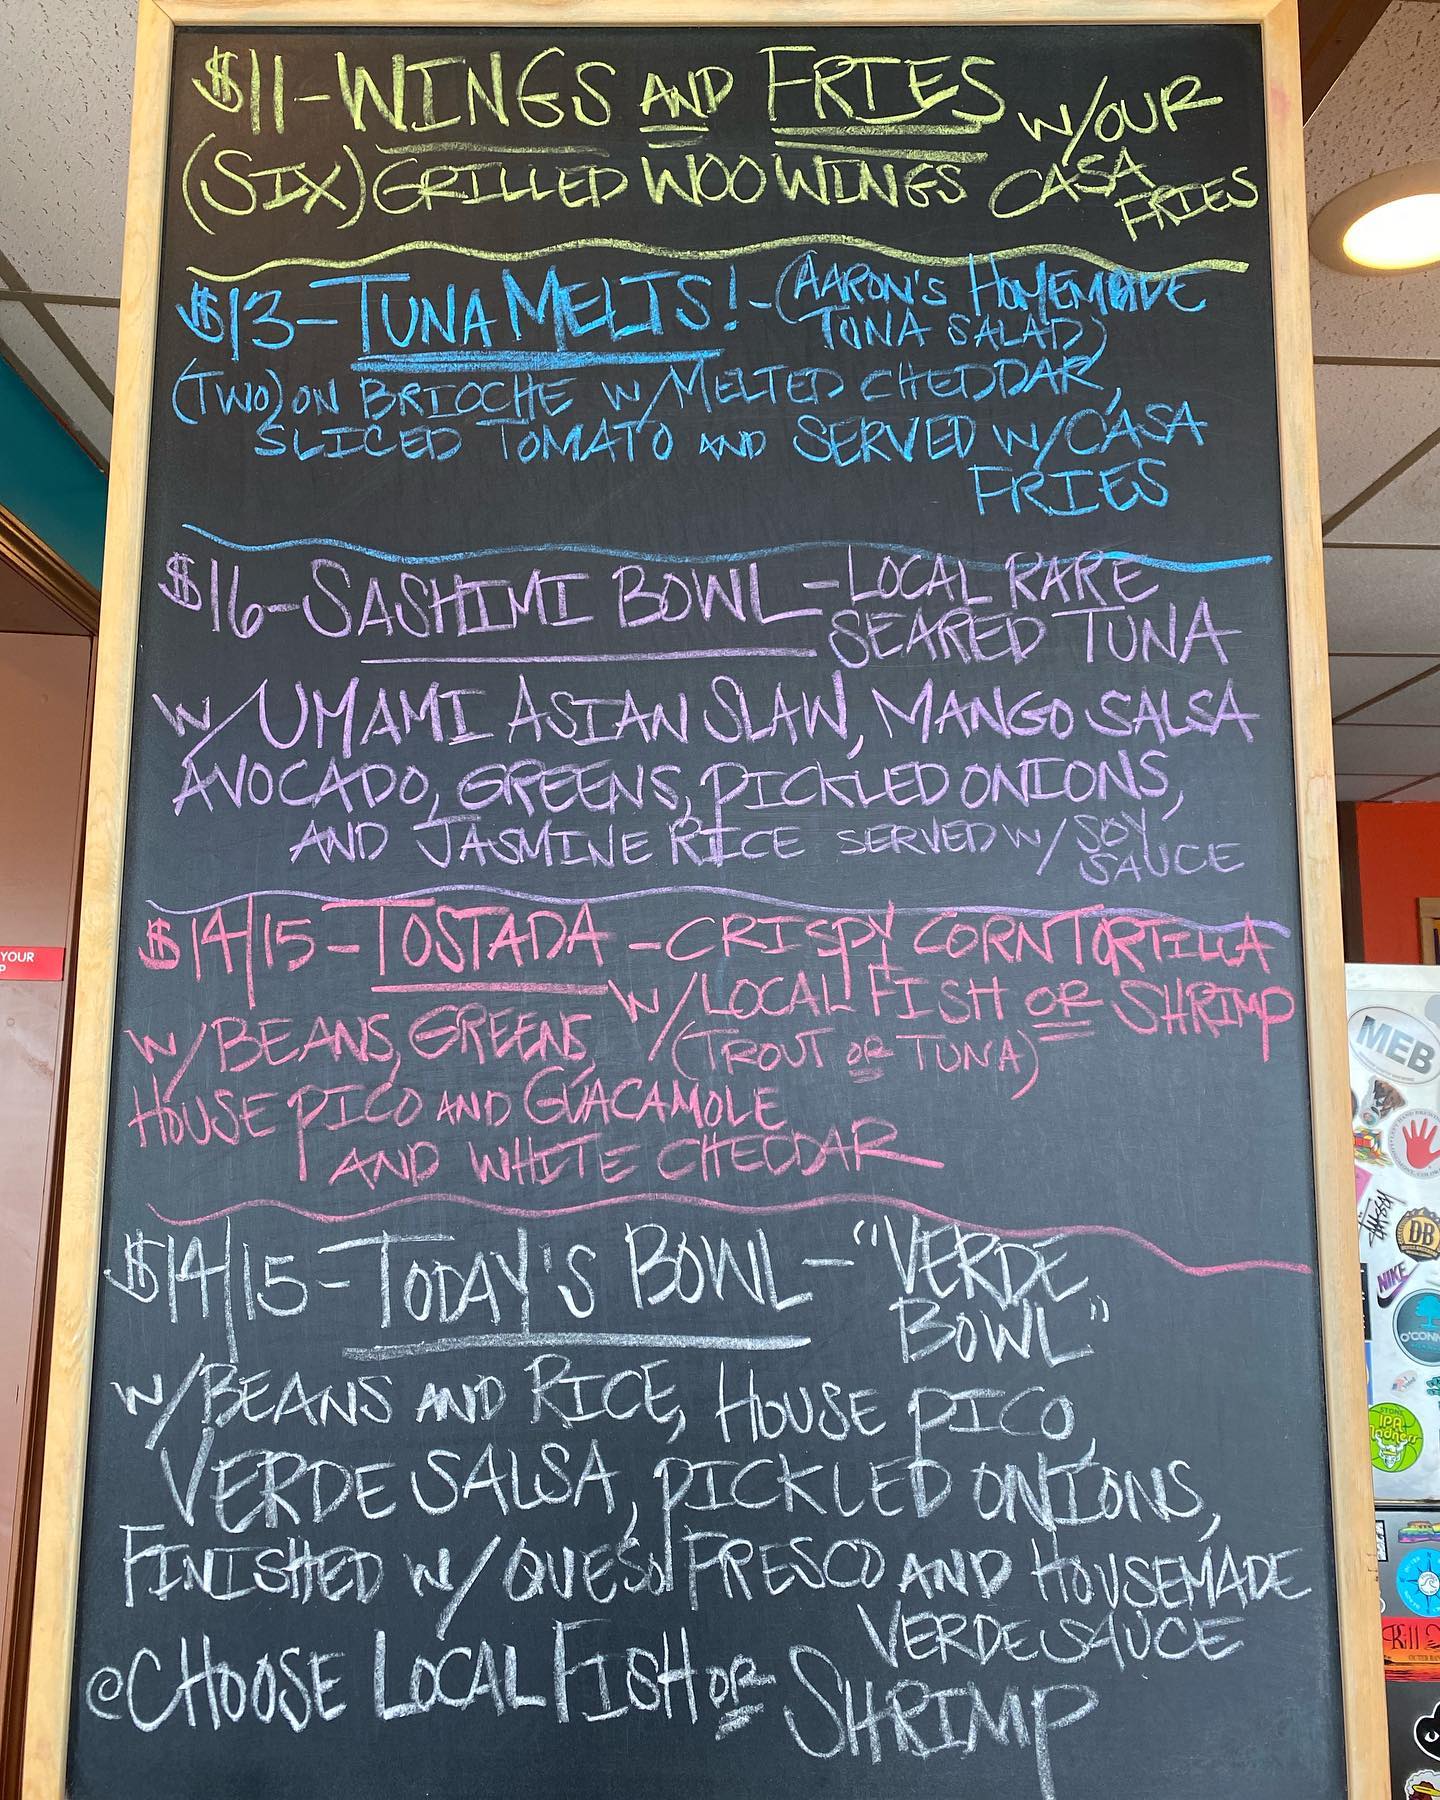 $11-WINGS AND FRIES W/OUR
(SIX) GRILLED WOO WINGS CASA
FRIES
$13-TUNA MELTS!-(AARON'S HOMEMADE
TUNA SALAD)
(TWO) ON BRIOCHE W/MELTED CHEDDAR,
SLICED TOMATO AND SERVED W/CASA
FRIES
$16-SASHIMI BOWL-LOCAL RARE
SEARED TUNA
W/UMAMI ASIAN SLAW, MANGO SALSA
AVOCADO, GREENS, PICKLED ONIONS,
AND JASMINE RICE SERVED W/ SOY
SAUCE
$14/15-TOSTADA-CRISPY CORN TORTILLA
W/LOCAL FISH OR SHRIMP
(TROUT OR TUNA)
W/BEANS, GREENS,
HOUSE PICO AND GUACAMOLE
AND WHITE CHEDDAR
$14/15-TODAY'S BOWL-"VERDE
BOWL"
W/BEANS AND RICE, HOUSE PICO,
VERDE SALSA, PICKLED ONIONS,
FINISHED W/ QUESO FRESCO AND HOUSEMADE
VERDE SAUCE
@CHOOSE LOCAL FISH OR SHRIMP
YOUR
MEB
DB
NIKE
O'CONN
STONE
IPA
Madness
Kill